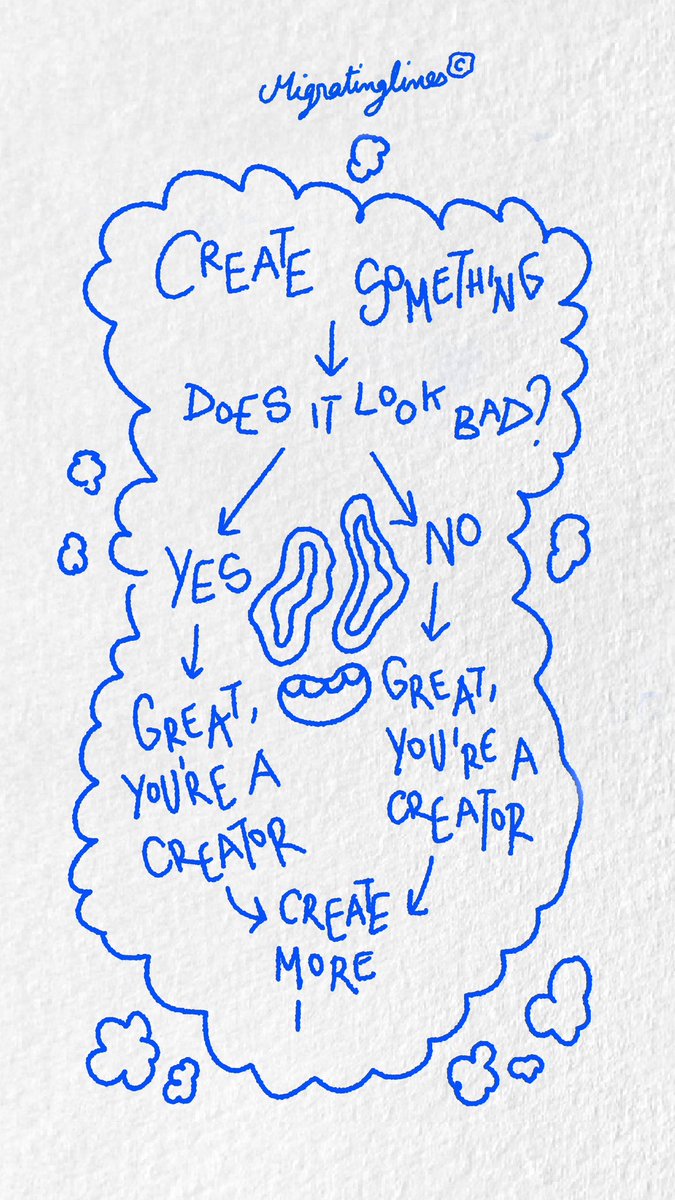 Migratinglines©
CREATE SOMETHING
DOES IT LOOK BAD?
YES
NO
GREAT,
YOU'RE A
CREATOR
GREAT,
YOU'RE A
CREATOR
CREATE
MORE